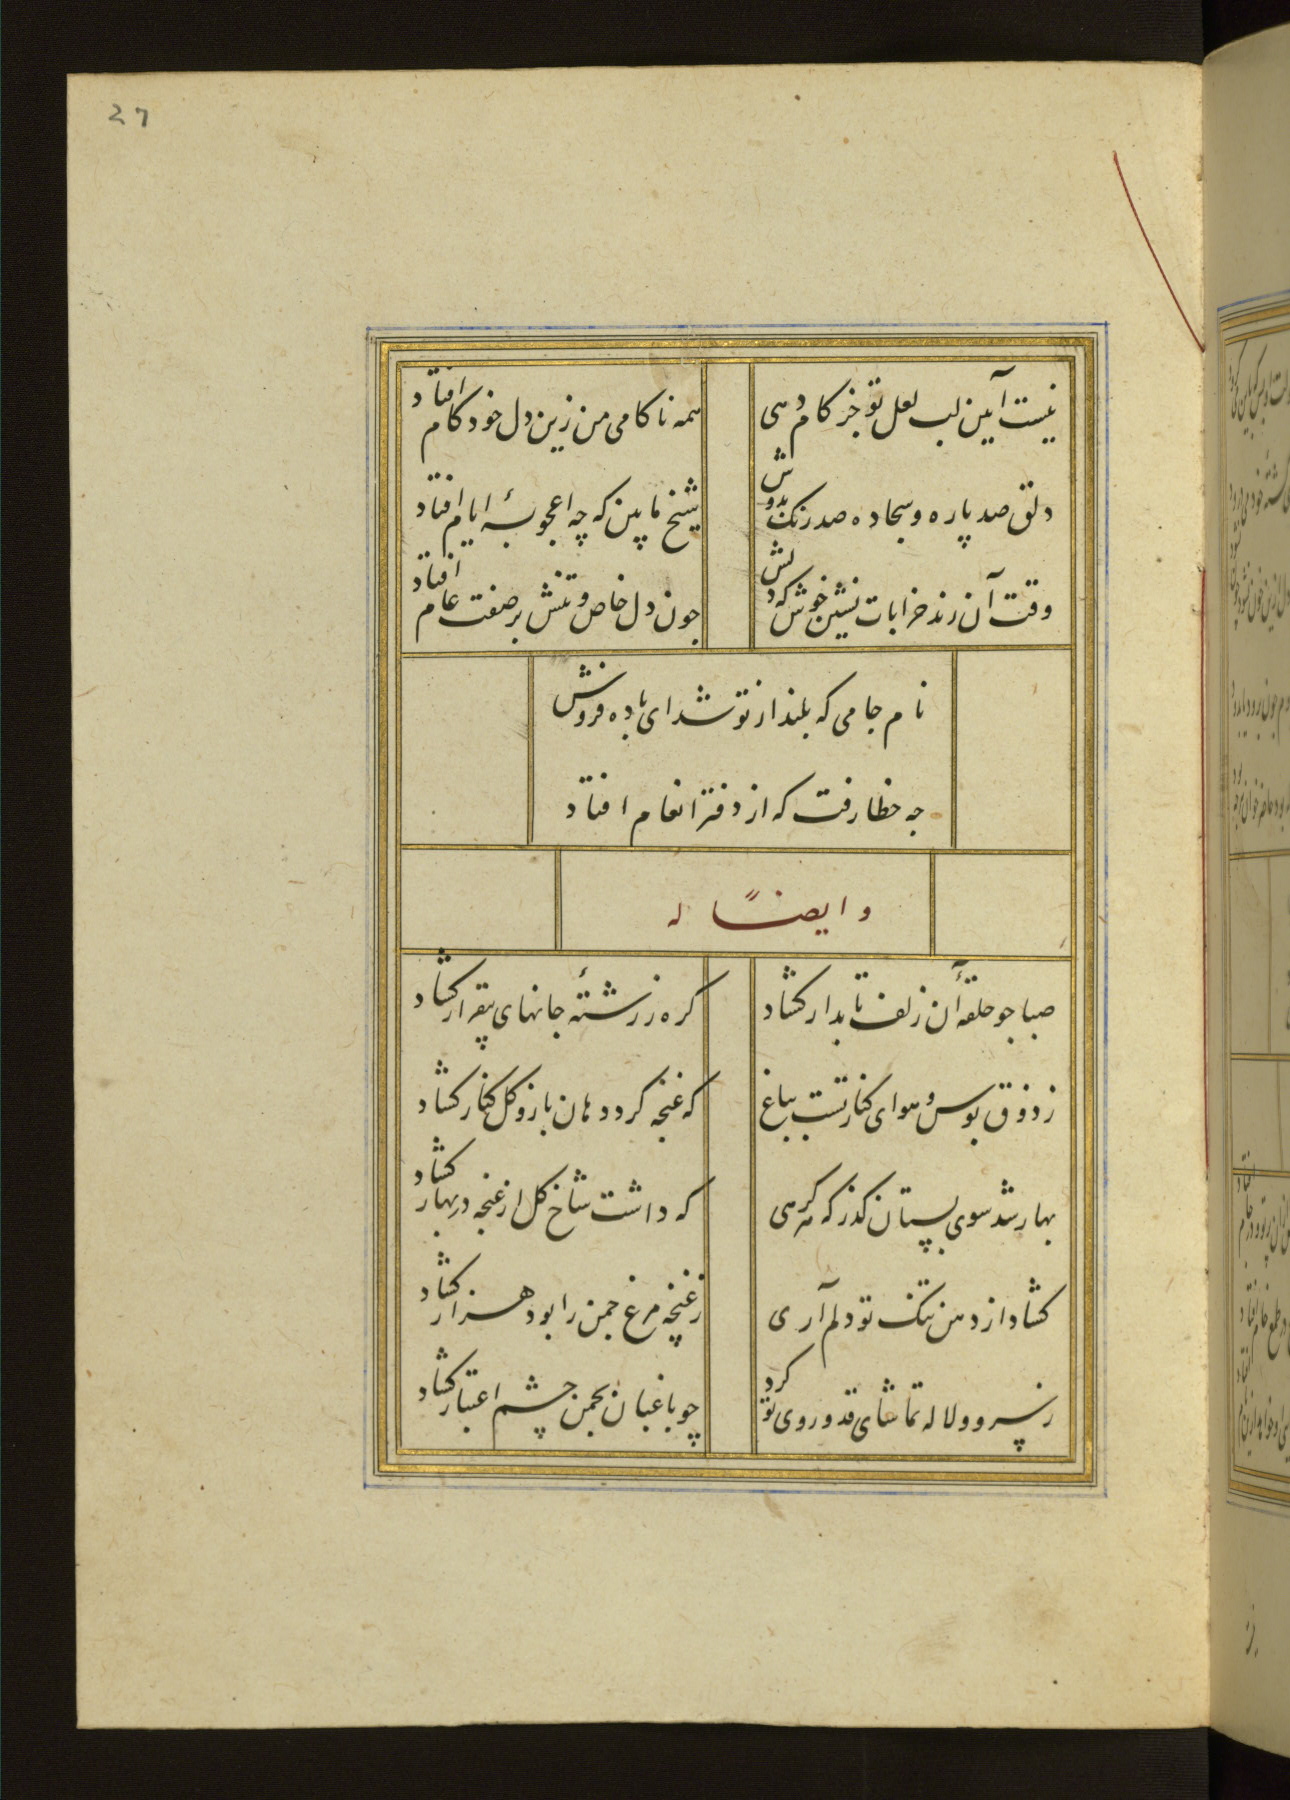 27
نیست آیین لب لعل تو جز کام دهی
همه ناکامی من زین دل خود کام افتاد
دلق صد پاره و سجاده صد رنک بدوش
شیخ ما بین که چه اعجوبهٔ ایام افتاد
وقت آن رند خرابات نشین خوش که دلش
جون دل خاص و تنش بر صفت عام افتاد
نام جامی که بلند از تو شد ای باده فروش
جه خطا رفت که از دفتر انعام افتاد
وایضاً له
صبا جو حلقهٔ آن زلف تابدار کشاد
کره ز رشتهٔ جانهای بیقرار کشاد
ز ذوق بوس و هوای کنار تست بباغ
که غنجه کرد دهان باز و کل کنار کشاد
بهار شد سوی بستان کذر که هر کرهی
که داشت شاخ کل از غنجه در بهار کشاد
کشاد از دهن تنک تو دلم آری
ز غنچه مرغ جمن را بود هزار کشاد
ز سرو و لاله تماشای قد و روی تو کرد
چو باغبان بجمن چشم اعتبار کشاد